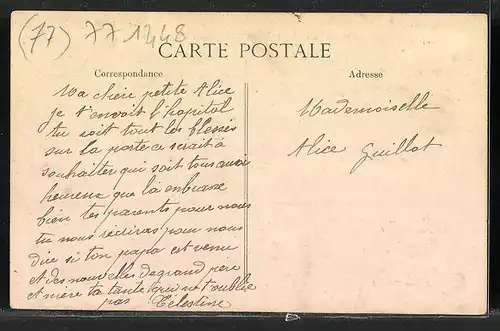 (77) 77 1248
CARTE POSTALE
Correspondance
Adresse
Ma chere petite Alice
je t'envoit l'hopital
tu voit tout les blessés
sur la porte a serait à
souhaiter qui soit tous aussi
heureux que là embrasse
bien tes parents pour nous
tu nous ecriras pour nous
dire si ton papa est venu
et des nouvelles de grand père
et mère ta tante qui ne t'oublie
pas Célestine
Mademoiselle
Alice Guillot